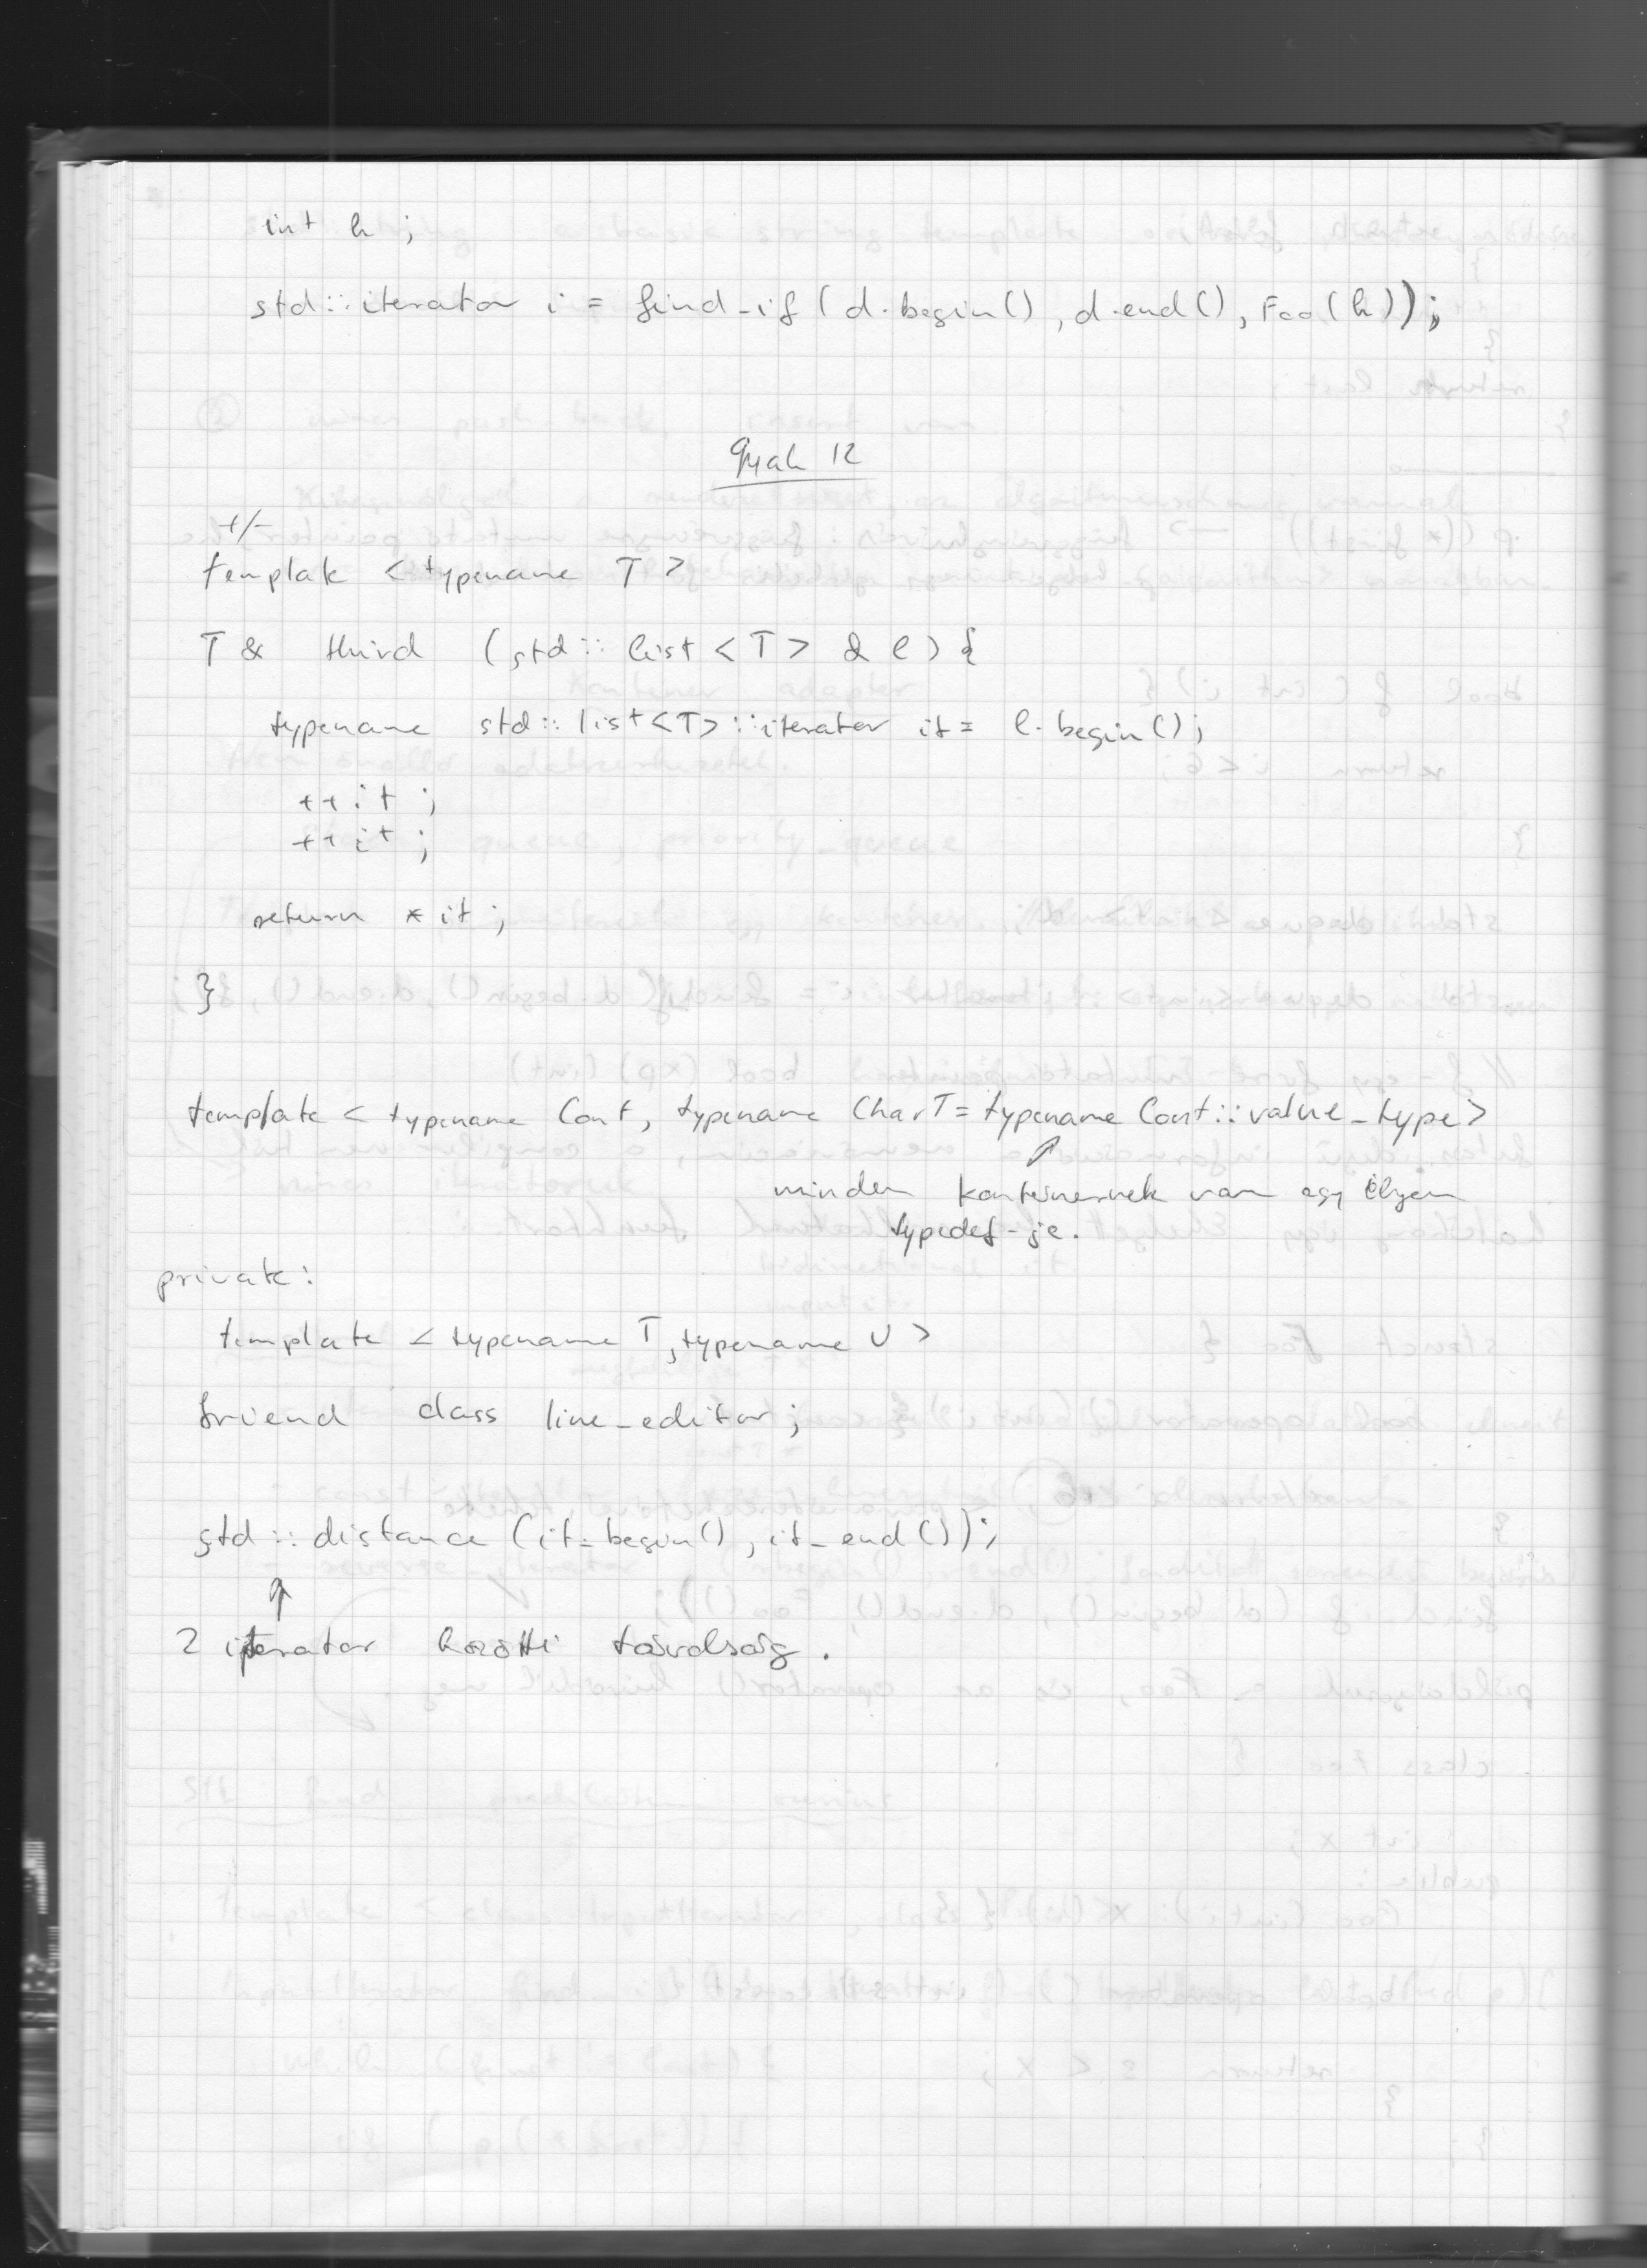 int k ;
std::iterator i = find_if ( d.begin() , d.end() , Foo(k) ) ;
Gyak 12
+/-
template < typename T >
T & third ( std :: list < T > & l ) {
typename std :: list<T> :: iterator it = l.begin() ;
++it ;
++it ;
return *it ;
}
template < typename Cont, typename CharT = typename Cont::value_type>
minden konténernek van egy ilyen
typedef-je.
private:
template < typename T, typename U >
friend class line_editor ;
std :: distance (it_begin() , it_end() ) ;
2 iterator közötti távolság .